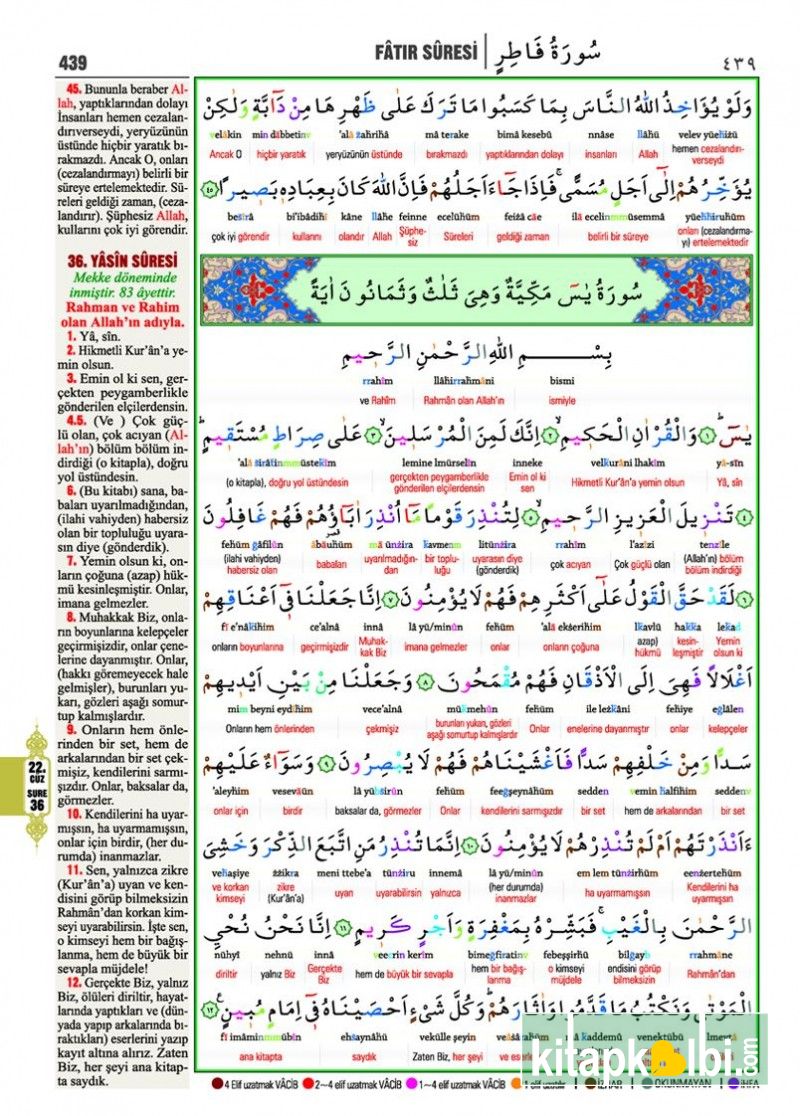 439
FÂTIR SÛRESİ
سُورَةُ فَاطِرٍ
٤٣٩
45. Bununla beraber Al-
lah, yaptıklarından dolayı
İnsanları hemen cezalan-
dırıverseydi, yeryüzünün
üstünde hiçbir yaratık bı-
rakmazdı. Ancak O, onları
(cezalandırmayı) belirli bir
süreye ertelemektedir. Sü-
releri geldiği zaman, (ceza-
landırır). Şüphesiz Allah,
kullarını çok iyi görendir.
36. YÂSÎN SÛRESİ
Mekke döneminde
inmiştir. 83 âyettir.
Rahman ve Rahim
olan Allah'ın adıyla.
1. Yâ, sîn.
2. Hikmetli Kur'ân'a ye-
min olsun.
3. Emin ol ki sen, ger-
çekten peygamberlikle
gönderilen elçilerdensin.
4.5. (Ve ) Çok güç-
lü olan, çok acıyan (Al-
lah'ın) bölüm bölüm in-
dirdiği (o kitapla), doğru
yol üstündesin.
6. (Bu kitabı) sana, ba-
baları uyarılmadığından,
(ilahi vahiyden) habersiz
olan bir topluluğu uyara-
sın diye (gönderdik).
7. Yemin olsun ki, on-
ların çoğuna (azap) hük-
mü kesinleşmiştir. Onlar,
imana gelmezler.
8. Muhakkak Biz, onla-
rın boyunlarına kelepçeler
geçirmişizdir, onlar çene-
lerine dayanmıştır. Onlar,
(hakkı göremeyecek hale
gelmişler), burunları yu-
karı, gözleri aşağı somur-
tup kalmışlardır.
9. Onların hem önle-
rinden bir set, hem de
arkalarından bir set çek-
mişiz, kendilerini sarmı-
şızdır. Onlar, baksalar da,
görmezler.
10. Kendilerini ha uyar-
mışsın, ha uyarmamışsın,
onlar için birdir, (her du-
rumda) inanmazlar.
11. Sen, yalnızca zikre
(Kur'ân'a) uyan ve ken-
disini görüp bilmeksizin
Rahmân'dan korkan kim-
seyi uyarabilirsin. İşte sen,
o kimseyi hem bir bağış-
lanma, hem de büyük bir
sevapla müjdele!
12. Gerçekte Biz, yalnız
Biz, ölüleri diriltir, hayat-
larında yaptıkları ve (dün-
yada yapıp arkalarında bı-
raktıkları) eserlerini yazıp
kayıt altına alırız. Zaten
Biz, her şeyi ana kitap-
ta saydık.
22.
CUZ
SURE
36
وَلَوْ يُؤَاخِذُ اللّٰهُ النَّاسَ بِمَا كَسَبُوا مَا تَرَكَ عَلٰى ظَهْرِهَا مِنْ دَٓابَّةٍ وَلٰكِنْ
velev yüehiżü llâhü nnâse bimâ kesebû mâ terake 'alâ żahrihâ min dâbbetinv velâkin
hemen cezalandırı-verseydi Allah insanları yaptıklarından dolayı bırakmazdı yeryüzünün üstünde hiçbir yaratık Ancak O
يُؤَخِّرُهُمْ اِلٰٓى اَجَلٍ مُسَمًّى فَاِذَا جَٓاءَ اَجَلُهُمْ فَاِنَّ اللّٰهَ كَانَ بِعِبَادِه۪ بَص۪يرًا ﴿٤٥﴾
yüehhiruhüm ilâ ecelinmmüsemma feiżâ câe ecelühüm feinne llâhe kâne bi'ibâdihî beśîrâ
onları (cezalandırma-yı) ertelemektedir belirli bir süreye geldiği zaman Süreleri Şüphe-siz Allah olandır kullarını çok iyi görendir
سُورَةُ يٰسٓ مَكِّيَّةٌ وَهِيَ ثَلٰثٌ وَثَمَانُونَ اٰيَةً
بِسْمِ اللّٰهِ الرَّحْمٰنِ الرَّح۪يمِ
bismi llâhirrahmâni rrahîm
ismiyle Rahmân olan Allah'ın ve Rahîm
يٰسٓ ﴿١﴾ وَالْقُرْاٰنِ الْحَك۪يمِ ﴿٢﴾ اِنَّكَ لَمِنَ الْمُرْسَل۪ينَ ﴿٣﴾ عَلٰى صِرَاطٍ مُسْتَق۪يمٍ
yâ-sîn velkurâni lhakîm inneke lemine lmürselîn 'alâ śirâtinmmüstekîm
Yâ, sîn Hikmetli Kur'ân'a yemin olsun Emin ol ki sen gerçekten peygamberlikle gönderilen elçilerdensin (o kitapla), doğru yol üstündesin
﴿٤﴾ تَنْز۪يلَ الْعَز۪يزِ الرَّح۪يمِ ﴿٥﴾ لِتُنْذِرَ قَوْمًا مَٓا اُنْذِرَ اٰبَٓاؤُهُمْ فَهُمْ غَافِلُونَ
tenzîle l'azîzi rrahîm litünżira kavmenm mâ ünżira âbâuhüm fehüm ğâfilûn
(Allah'ın) bölüm bölüm indirdiği Çok güçlü olan çok acıyan uyarasın diye (gönderdik) bir toplu-luğu uyarılmadığın-dan babaları (ilahi vahiyden) habersiz olan
﴿٦﴾ لَقَدْ حَقَّ الْقَوْلُ عَلٰٓى اَكْثَرِهِمْ فَهُمْ لَا يُؤْمِنُونَ ﴿٧﴾ اِنَّا جَعَلْنَا ف۪ٓي اَعْنَاقِهِمْ
lekad hakka lkavlü 'alâ ekśerihim fehüm lâ yü/minûn innâ ce'alnâ fî e'nâkihim
Yemin olsun ki kesin-leşmiştir azap) hükmü onların çoğuna onlar imana gelmezler Muhak-kak Biz geçirmişizdir onların boyunlarına
اَغْلَالًا فَهِيَ اِلَى الْاَذْقَانِ فَهُمْ مُقْمَحُونَ ﴿٨﴾ وَجَعَلْنَا مِنْ بَيْنِ اَيْد۪يهِمْ
eğlâlen fehiye ile leżkâni fehüm mükmehûn vece'alnâ mim beyni eydîhim
kelepçeler onlar enelerine dayanmıştır Onlar burunları yukarı, gözleri aşağı somurtup kalmışlardır çekmişiz Onların hem önlerinden
سَدًّا وَمِنْ خَلْفِهِمْ سَدًّا فَاَغْشَيْنَاهُمْ فَهُمْ لَا يُبْصِرُونَ ﴿٩﴾ وَسَوَٓاءٌ عَلَيْهِمْ
seddenv vemin halfihim sedden feeğşeynâhüm fehüm lâ yübśirûn vesevâün 'aleyhim
bir set hem de arkalarından bir set kendilerini sarmışızdır Onlar baksalar da, görmezler birdir onlar için
ءَاَنْذَرْتَهُمْ اَمْ لَمْ تُنْذِرْهُمْ لَا يُؤْمِنُونَ ﴿١٠﴾ اِنَّمَا تُنْذِرُ مَنِ اتَّبَعَ الذِّكْرَ وَخَشِيَ
eenżertehüm em lem tünżirhüm lâ yü/minûn innemâ tünżiru meni ttebe'a żżikra vehaşiye
Kendilerini ha uyarmışsın ha uyarmamışsın (her durumda) inanmazlar yalnızca uyarabilirsin uyan zikre (Kur'ân'a) ve korkan kimseyi
الرَّحْمٰنَ بِالْغَيْبِ فَبَشِّرْهُ بِمَغْفِرَةٍ وَاَجْرٍ كَر۪يمٍ ﴿١١﴾ اِنَّا نَحْنُ نُحْيِ
rrahmâne bilğayb febeşşirhü bimeğfirativ veecrin kerîm innâ nehnü nühyi
Rahmân'dan endisini görüp bilmeksizin o kimseyi müjdele hem bir bağış-lanma hem de büyük bir sevapla Gerçekte Biz yalnız Biz diriltir
الْمَوْتٰى وَنَكْتُبُ مَا قَدَّمُوا وَاٰثَارَهُمْ وَكُلَّ شَيْءٍ اَحْصَيْنَاهُ ف۪ٓي اِمَامٍ مُب۪ينٍ ﴿١٢﴾
lmevtâ venektübü mâ kaddemû veâśârahüm vekülle şeyin ehsaynâhü fî imâminmmübîn
ve es Zaten Biz, her şeyi saydık ana kitapta
kitapkolbi.com
4 Elif uzatmak VÂCİB 2~4 elif uzatmak VÂCİB 1~4 elif uzatmak VÂCİB 1 elif uzatılır İZHAR OKUNMAYAN İHFA